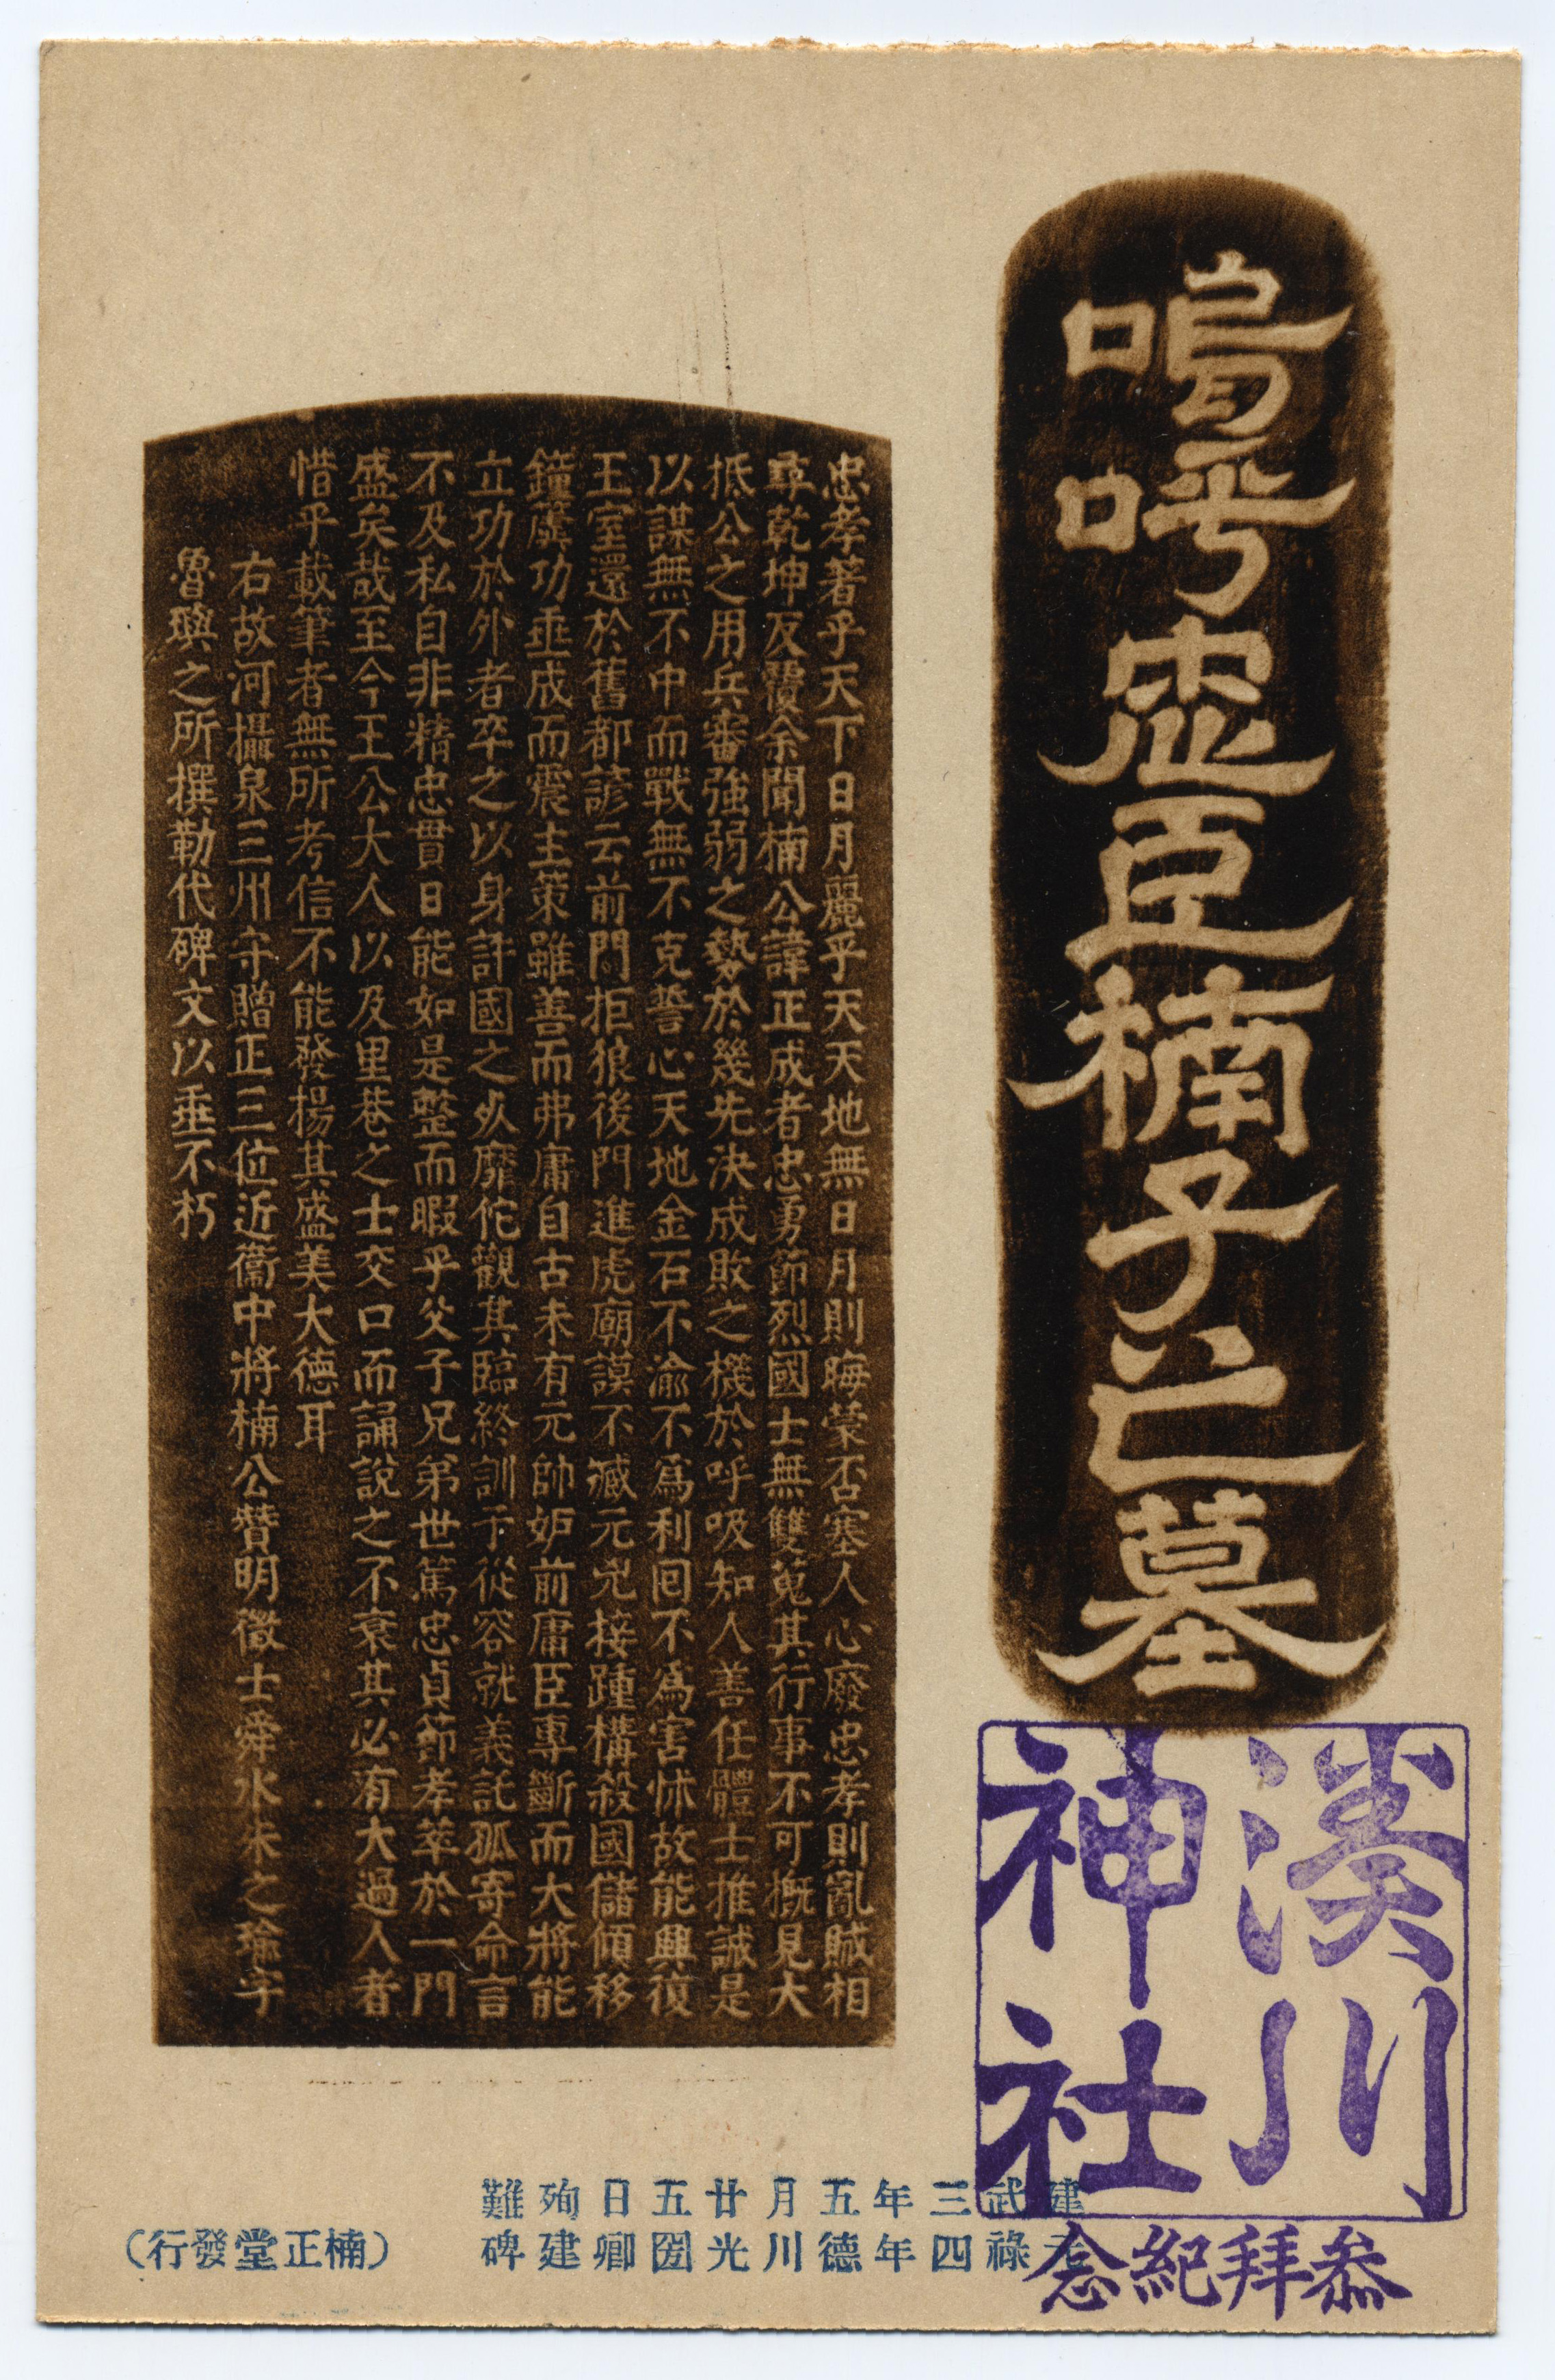 嗚呼忠臣楠子之墓
忠孝著乎天下日月麗乎天天地無日月則晦蒙否塞人心廢忠孝則亂賊相
尋乾坤反覆余聞楠公諱正成者忠勇節烈國士無雙蒐其行事不可概見大
抵公之用兵審強弱之勢於幾先決成敗之機於呼吸知人善任體士推誠是
以謀無不中而戰無不克誓心天地金石不渝不為利回不為害怵故能興復
王室還於舊都諺云前門拒狼後門進虎廟謨不臧元兇接踵構殺國儲傾移
鐘虡功垂成而震主策雖善而弗庸自古未有元帥妒前庸臣專斷而大將能
立功於外者卒之以身許國之死靡佗觀其臨終訓子從容就義託孤寄命言
不及私自非精忠貫日能如是整而暇乎父子兄弟世篤忠貞節孝萃於一門
盛矣哉至今王公大人以及里巷之士交口而誦說之不衰其必有大過人者
惜乎載筆者無所考信不能發揚其盛美大德耳
右故河攝泉三州守贈正三位近衞中將楠公贊明徵士舜水朱之瑜字
魯璵之所撰勒代碑文以垂不朽
湊川
神社
參拜紀念
建武三年五月廿五日殉難
元祿四年德川光圀卿建碑
（楠正堂發行）